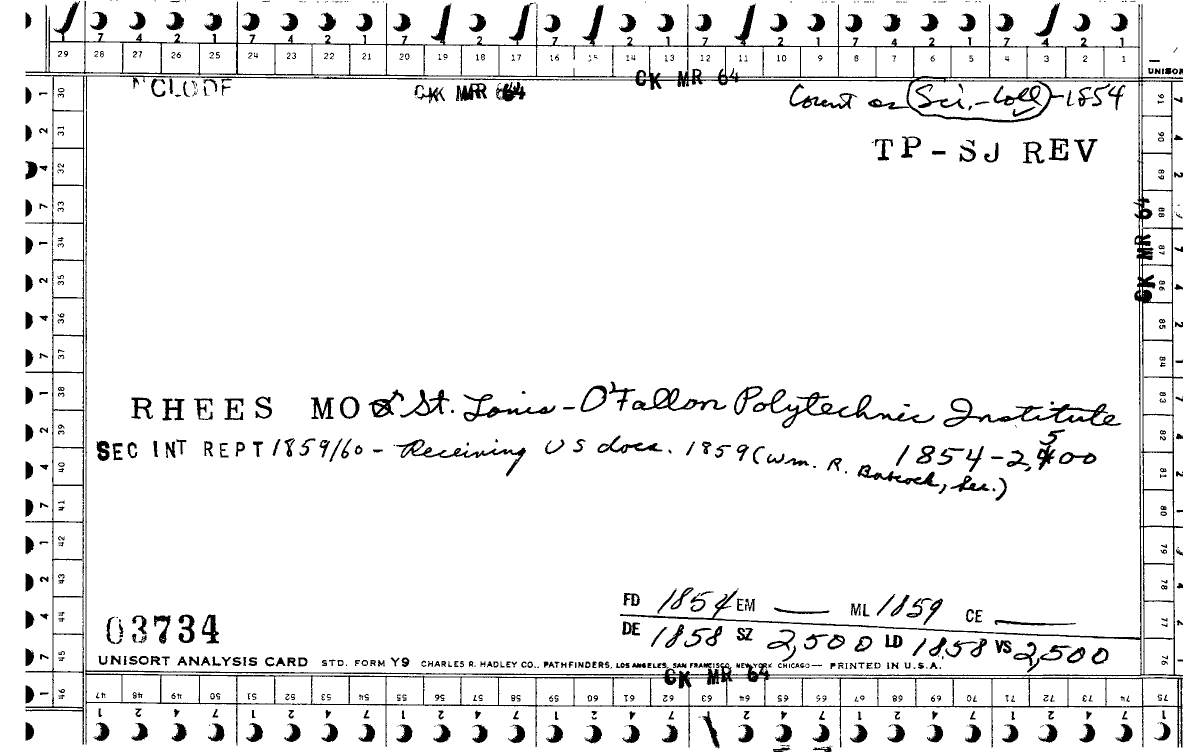 7 4 2 1 7 4 2 1 7 2 1 7 4 2 1 7 2 1 7 4 2 1 7 2 1
29 28 27 26 25 24 23 22 21 20 19 18 17 16 15 14 13 12 11 10 9 8 7 6 5 4 3 2 1
UNISOR
CK MR 64
CK MR 64
Count as Sci.-Coll-1854
TP-SJ REV
CK MR 64
RHEES MO St. Louis - O'Fallon Polytechnic Institute
SEC INT REPT 1859/60 - Receiving US docs. 1859 (Wm. R. Babcock, Sec.) 1854-2,500
FD 1854 EM — ML 1859 CE —
03734
DE 1858 SZ 2,500 LD 1858 VS 2,500
UNISORT ANALYSIS CARD STD. FORM Y9 CHARLES R. HADLEY CO., PATHFINDERS, LOS ANGELES, SAN FRANCISCO, NEW YORK CHICAGO — PRINTED IN U.S.A.
CK MR 64
30 31 32 33 34 35 36 37 38 39 40 41 42 43 44 45 46
47 48 49 50 51 52 53 54 55 56 57 58 59 60 61 62 63 64 65 66 67 68 69 70 71 72 73 74 75
76 77 78 79 80 81 82 83 84 85 86 87 88 89 90 91